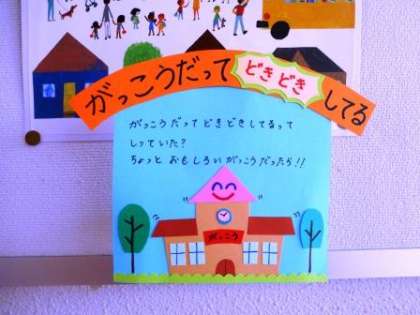 がっこうだって どきどき してる
がっこうだって どきどきしてるって
しっていた?
ちょっと おもしろい がっこうだったら!!
がっこう